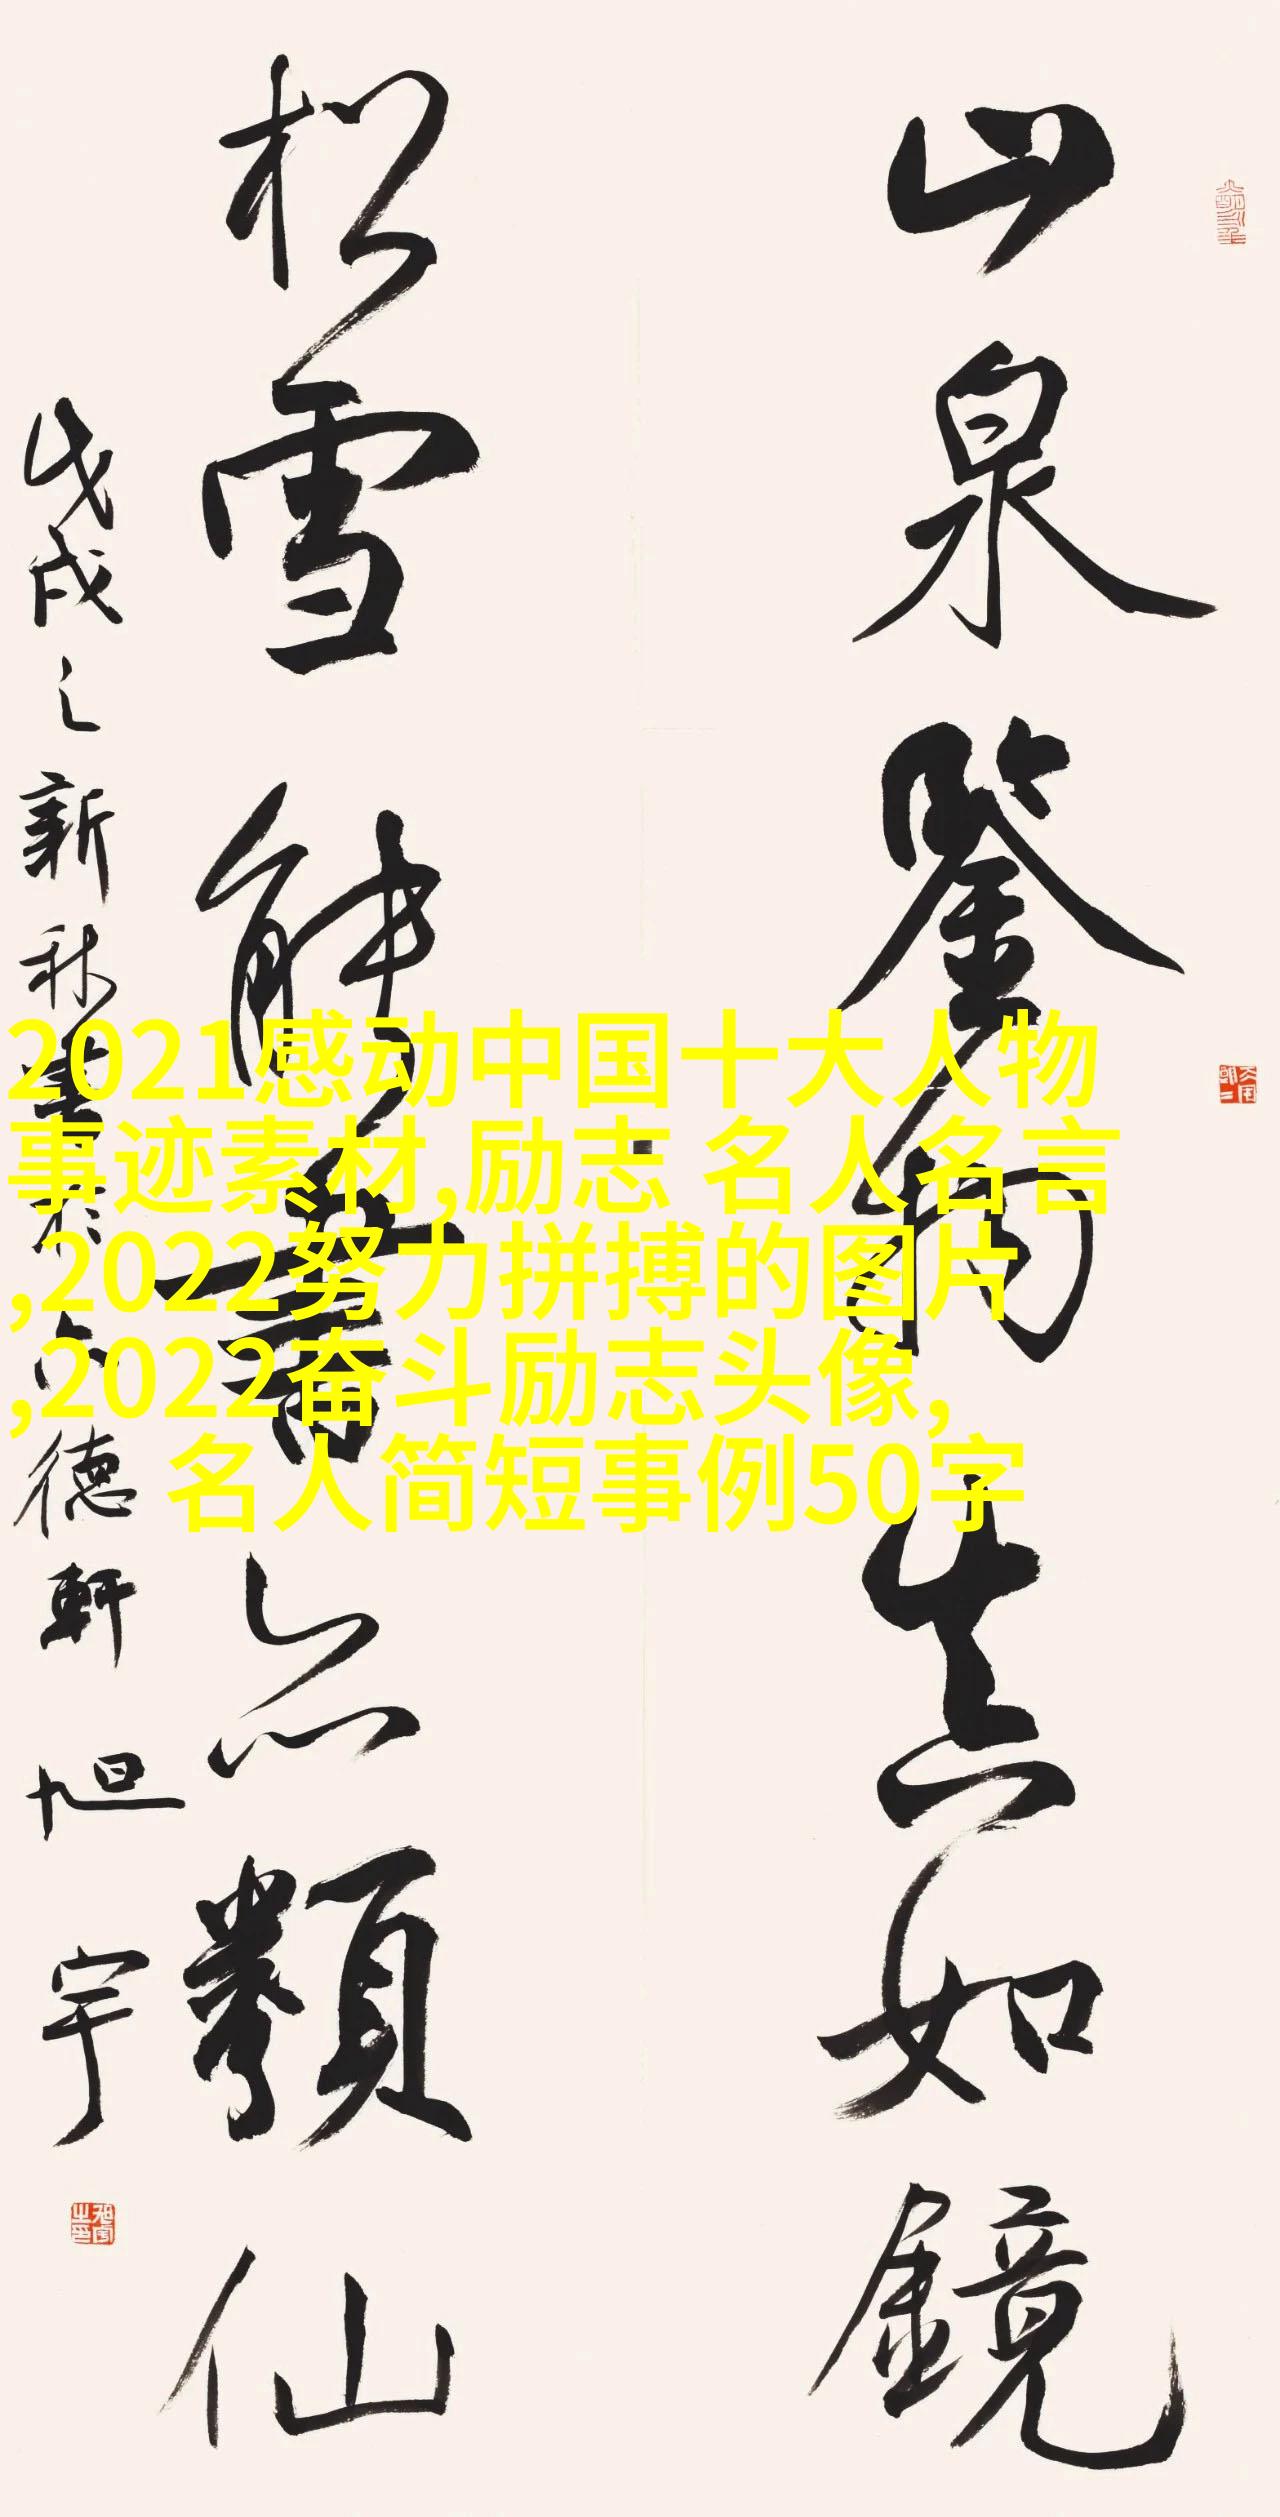 山泉鑒物真如鏡
松雪能詩亦類仙
戊戌之新秋書於
德軒
旭宇
2021感动中国十大人物
事迹素材,励志 名人名言
,2022努力拼搏的图片
,2022奋斗励志头像,
名人简短事例50字